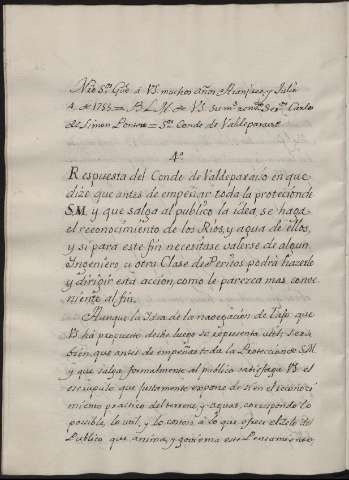 Nro Sr. Gde. á VS. muchos años Aranjuez y Julio
4. de 1755 = B. L. M. de VS. su mr. Servr. Carlos
de Simon Pontero = Sr. Conde de Valdeparaiso
4º
Respuesta del Conde de Valdeparaiso en que
dize que antes de empeñar toda la proteción de
S.M. y que salga al público la idea, se haga
el reconocimiento de los Rios, y agua de ellos,
y si para este fin necesitase valerse de algun
Ingeniero, u otra Clase de Peritos podrá hazerlo
y dirigir esta acción, como le parezca mas conve
niente al fin.
Aunque la Idea de la navegacion de Tajo que
VS. há propuesto desde luego se representa util; será
bien, que antes de empeñar toda la Proteccion de S.M.
y que salga formalmente al público satisfaga VS. el
escrúpulo que justamente expone de si en el reconoci
miento practico del terreno, y aguas, corresponde lo
posible, lo util, y lo costoso á lo que ofrece el zelo del
Público que anima, y govierna este Pensamiento.